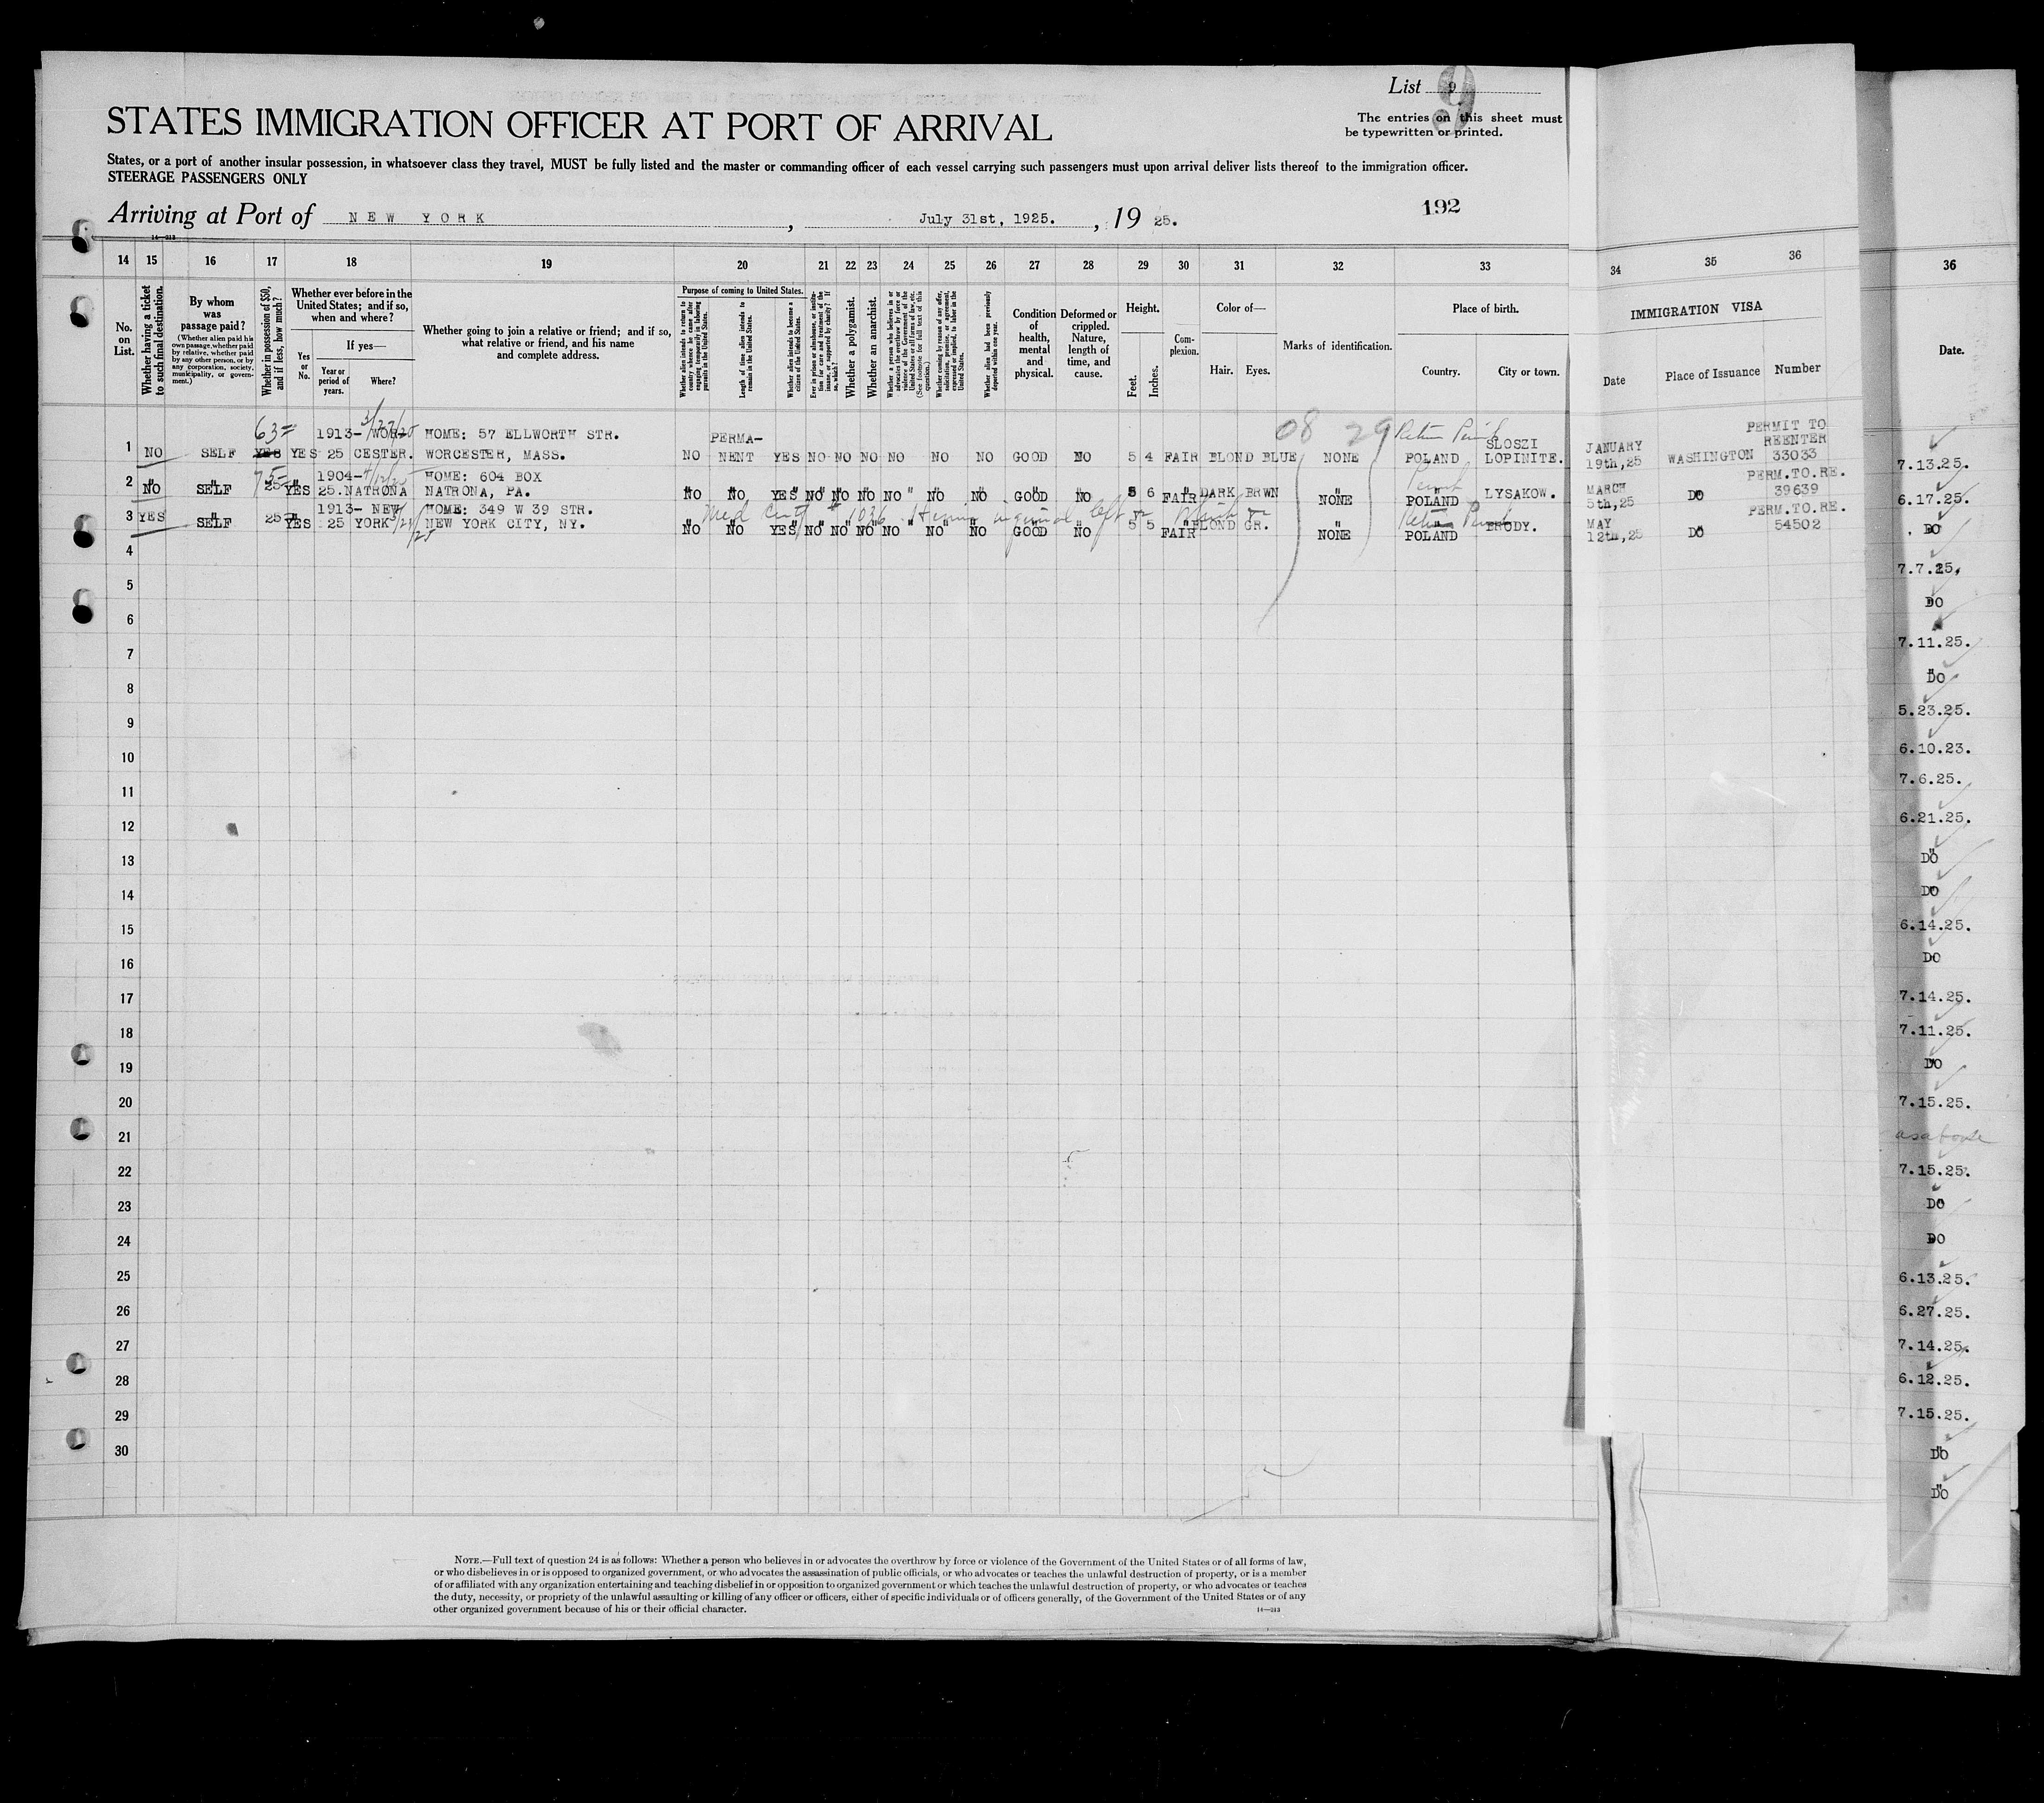 List 9
9
STATES IMMIGRATION OFFICER AT PORT OF ARRIVAL
The entries on this sheet must
be typewritten or printed.
States, or a port of another insular possession, in whatsoever class they travel, MUST be fully listed and the master or commanding officer of each vessel carrying such passengers must upon arrival deliver lists thereof to the immigration officer.
STEERAGE PASSENGERS ONLY
Arriving at Port of NEW YORK, July 31st, 1925., 19 25.
192
14—213
14 15 16 17 18 19 20 21 22 23 24 25 26 27 28 29 30 31 32 33 34 35 36 36
No. on List.
Whether having a ticket to such final destination.
By whom was passage paid?
(Whether alien paid his own passage, whether paid by relative, whether paid by any other person, or by any corporation, society, municipality, or government.)
Whether in possession of $50, and if less, how much?
Whether ever before in the United States; and if so, when and where?
Yes or No.
If yes—
Year or period of years.
Where?
Whether going to join a relative or friend; and if so, what relative or friend, and his name and complete address.
Purpose of coming to United States.
Whether alien intends to return to country whence he came after engaging temporarily in laboring pursuits in the United States.
Length of time alien intends to remain in the United States.
Whether alien intends to become a citizen of the United States.
Ever in prison or almshouse, or institution for care and treatment of the insane, or supported by charity? If so, which?
Whether a polygamist.
Whether an anarchist.
Whether a person who believes in or advocates the overthrow by force or violence of the Government of the United States or all forms of law, etc. (See footnote for full text of this question.)
Whether coming by reason of any offer, solicitation, promise, or agreement, expressed or implied, to labor in the United States.
Whether alien had been previously deported within one year.
Condition of health, mental and physical.
Deformed or crippled. Nature, length of time, and cause.
Height.
Feet. Inches.
Complexion.
Color of—
Hair. Eyes.
Marks of identification.
Place of birth.
Country. City or town.
IMMIGRATION VISA
Date Place of Issuance Number
Date.
63= 3/27/25 08 29 Return Permit PERMIT TO
1913- WOR- HOME: 57 ELLWORTH STR. PERMA- SLOSZI JANUARY REENTER
1 NO SELF YES YES 25 CESTER. WORCESTER, MASS. NO NENT YES NO NO NO NO NO NO GOOD NO 5 4 FAIR BLOND BLUE NONE POLAND LOPINITE. 19th,25 WASHINGTON 33033
75= 1904- HOME: 604 BOX Permit PERM.TO.RE.
2 NO SELF 25 YES 25. NATRONA NATRONA, PA. NO NO YES NO NO NO NO NO NO GOOD NO 5 6 FAIR DARK BRWN NONE POLAND LYSAKOW. MARCH 5th,25 DO 39639
1913- NEW HOME: 349 W 39 STR. Med Cert # 1036 Hernia inguinal left Return Permit PERM.TO.RE.
3 YES SELF 25 YES 25 YORK NEW YORK CITY, NY. NO NO YES NO NO NO NO NO NO GOOD NO 5 5 FAIR BLOND GR. NONE POLAND BRODY. MAY 12th,25 DO 54502
4
5
6
7
8
9
10
11
12
13
14
15
16
17
18
19
20
21
22
23
24
25
26
27
28
29
30
7.13.25.
6.17.25.
DO
7.7.25.
DO
7.11.25.
DO
5.23.25.
6.10.23.
7.6.25.
6.21.25.
DO
DO
6.14.25.
DO
7.14.25.
7.11.25.
DO
7.15.25.
as above
7.15.25.
DO
DO
6.13.25.
6.27.25.
7.14.25.
6.12.25.
7.15.25.
DO
DO
NOTE.—Full text of question 24 is as follows: Whether a person who believes in or advocates the overthrow by force or violence of the Government of the United States or of all forms of law,
or who disbelieves in or is opposed to organized government, or who advocates the assassination of public officials, or who advocates or teaches the unlawful destruction of property, or is a member
of or affiliated with any organization entertaining and teaching disbelief in or opposition to organized government or which teaches the unlawful destruction of property, or who advocates or teaches
the duty, necessity, or propriety of the unlawful assaulting or killing of any officer or officers, either of specific individuals or of officers generally, of the Government of the United States or of any
other organized government because of his or their official character.
14—213